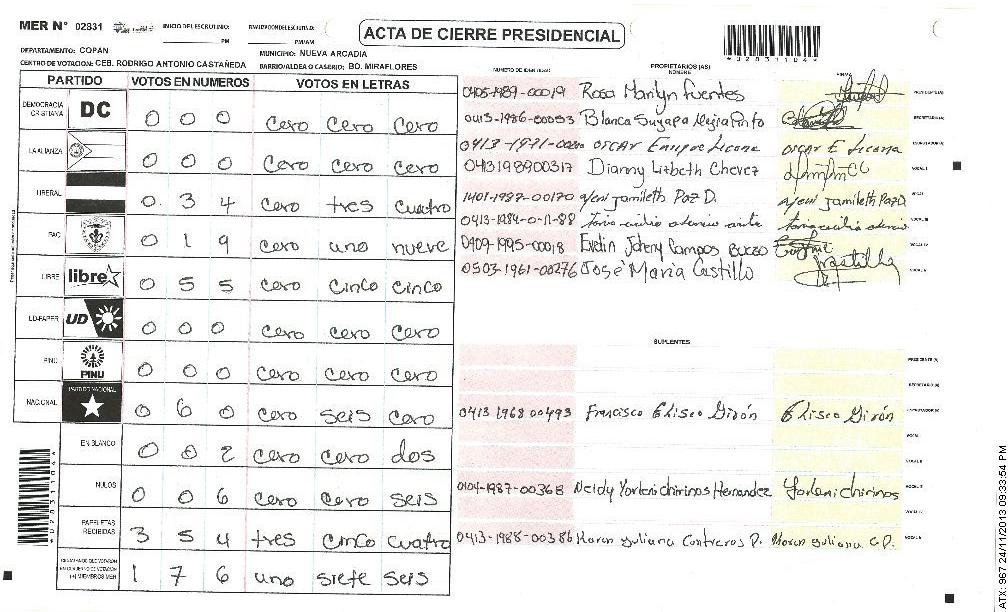 MER N° 02831 INICIO DEL ESCRUTINIO: PM FINALIZACION DEL ESCRUTINIO: PM/AM
ACTA DE CIERRE PRESIDENCIAL
*02831104*
DEPARTAMENTO: COPAN MUNICIPIO: NUEVA ARCADIA
CENTRO DE VOTACION: CEB. RODRIGO ANTONIO CASTAÑEDA BARRIO/ALDEA O CASERIO: BO. MIRAFLORES
PARTIDO VOTOS EN NUMEROS VOTOS EN LETRAS
DEMOCRACIA CRISTIANA DC 0 0 0 cero cero cero
LA ALIANZA 0 0 0 cero cero cero
LIBERAL 0 3 4 cero tres cuatro
PAC 0 1 9 cero uno nueve
LIBRE libre 0 5 5 cero cinco cinco
UD-FAPER UD 0 0 0 cero cero cero
PINU PINU 0 0 0 cero cero cero
NACIONAL PARTIDO NACIONAL 0 6 0 cero seis cero
EN BLANCO 0 0 2 cero cero dos
NULOS 0 0 6 cero cero seis
PAPELETAS RECIBIDAS 3 5 4 tres cinco cuatro
1 7 6 uno siete seis
NUMERO DE IDENTIDAD PROPIETARIOS (AS) NOMBRE FIRMA
0405-1989-00019 Rosa Marilyn Fuentes PRESIDENTE(A)
0413-1986-00053 Blanca Suyapa SECRETARIO(A)
0413-1971- OSCAR Enrique Licona OSCAR E Licona ESCRUTADOR(A)
0413198900317 Dianny Lizbeth Chevez VOCAL I
1401-1987-00170 Yeni Jamileth Paz D. Yeni Jamileth Paz D.
0413-1984-
0409-1995-00018 Evelin
0503-1961-00276 José Maria Castillo
SUPLENTES
PRESIDENTE(A)
SECRETARIO(A)
0413 1968 00493 Francisco Eliseo Girón Eliseo Girón ESCRUTADOR(A)
VOCAL I
VOCAL II
0104-1987-00368 Neidy Yorleni Chirinos Hernandez Yorleni chirinos
0413-1988-00386 Karen Yuliana Contreras P. Karen Yuliana C.P.
*02831104*
ATX: 967 24/11/2013 09:33:54 PM